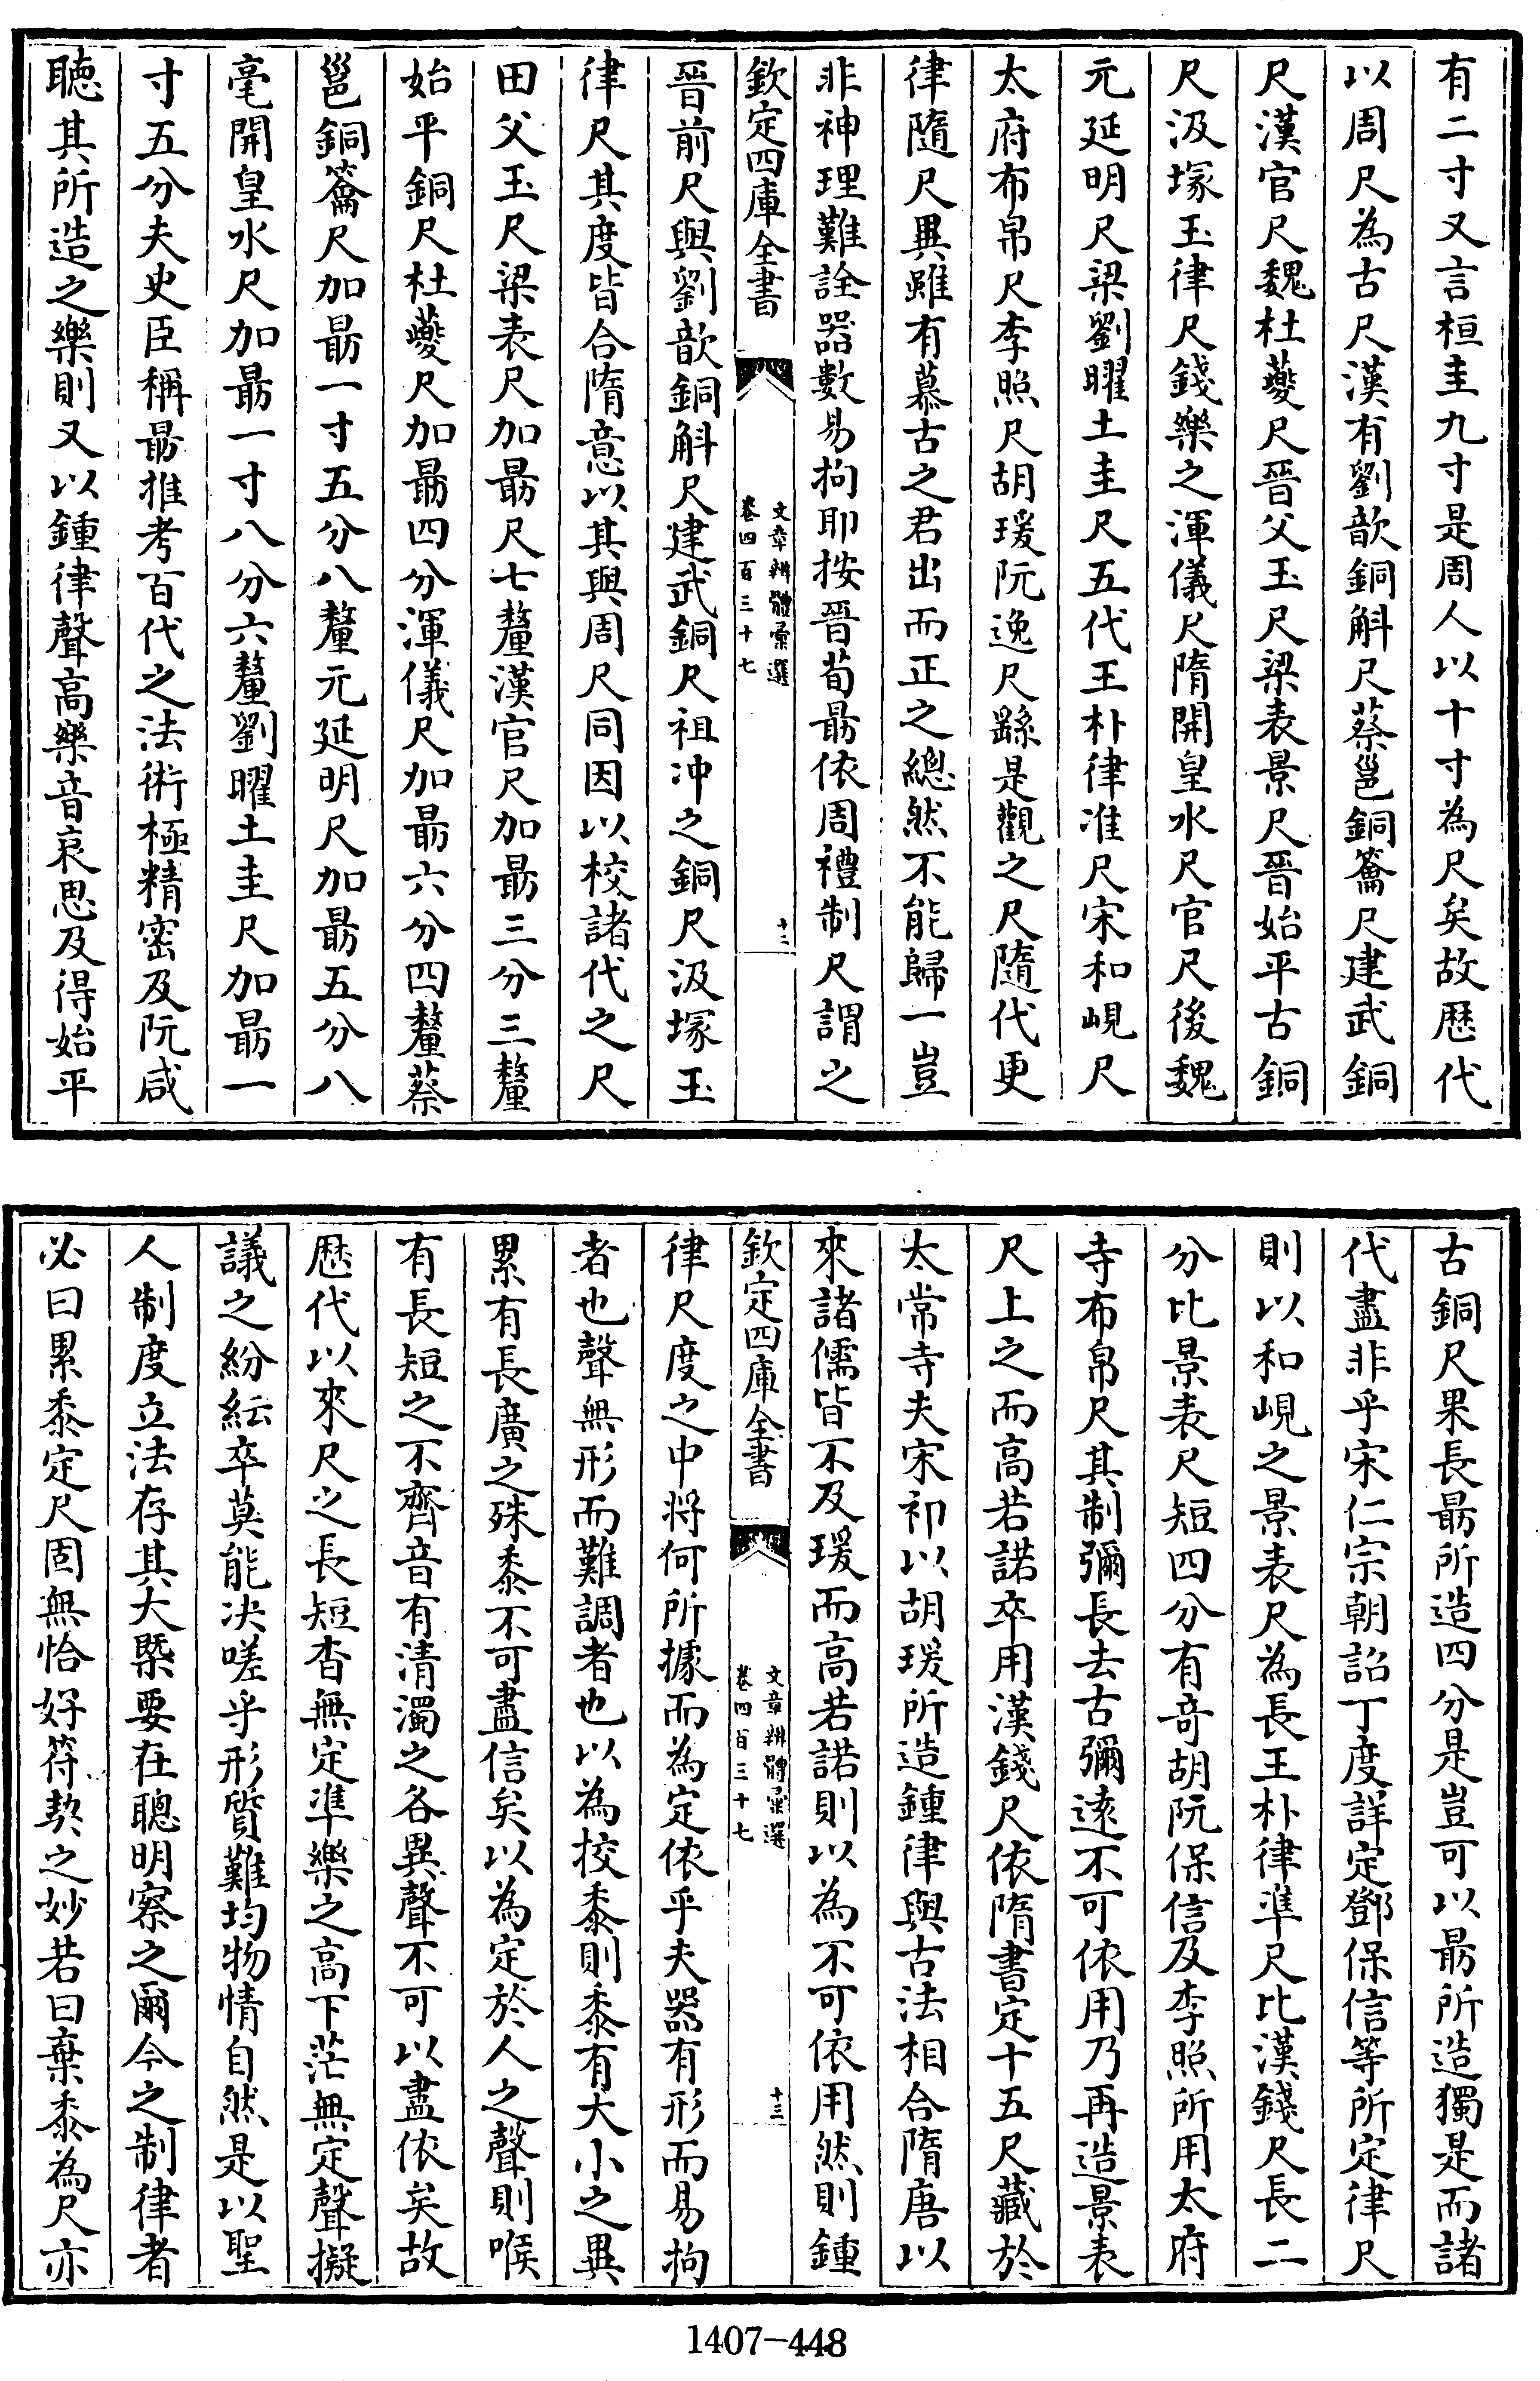 有二寸又言桓圭九寸是周人以十寸為尺矣故歷代
以周尺為古尺漢有劉歆銅斛尺蔡邕銅籥尺建武銅
尺漢官尺魏杜夔尺晉父玉尺梁表景尺晉始平古銅
尺汲塚玉律尺錢樂之渾儀尺隋開皇水尺官尺後魏
元延明尺梁劉曜土圭尺五代王朴律准尺宋和峴尺
太府布帛尺李照尺胡瑗阮逸尺繇是觀之尺隨代更
律隨尺異雖有慕古之君出而正之總然不能歸一豈
非神理難詮器數易拘耶按晉荀朂依周禮制尺謂之
欽定四庫全書
文章辨體彙選
卷四百三十七
十二
晉前尺與劉歆銅斛尺建武銅尺祖冲之銅尺汲塚玉
律尺其度皆合隋意以其與周尺同因以校諸代之尺
田父玉尺梁表尺加朂尺七釐漢官尺加朂三分三釐
始平銅尺杜夔尺加朂四分渾儀尺加朂六分四釐蔡
邕銅籥尺加朂一寸五分八釐元延明尺加朂五分八
毫開皇水尺加朂一寸八分六釐劉曜土圭尺加朂一
寸五分夫史臣稱朂推考百代之法術極精密及阮咸
聽其所造之樂則又以鍾律聲高樂音哀思及得始平
古銅尺果長朂所造四分是豈可以朂所造獨是而諸
代盡非乎宋仁宗朝詔丁度詳定鄧保信等所定律尺
則以和峴之景表尺為長王朴律準尺比漢錢尺長二
分比景表尺短四分有奇胡阮保信及李照所用太府
寺布帛尺其制彌長去古彌遠不可依用乃再造景表
尺上之而高若諾卒用漢錢尺依隋書定十五尺藏於
太常寺夫宋初以胡瑗所造鍾律與古法相合隋唐以
來諸儒皆不及瑗而高若諾則以為不可依用然則鍾
欽定四庫全書
文章辨體彙選
卷四百三十七
十三
律尺度之中將何所據而為定依乎夫器有形而易拘
者也聲無形而難調者也以為挍黍則黍有大小之異
累有長廣之殊黍不可盡信矣以為定於人之聲則喉
有長短之不齊音有清濁之各異聲不可以盡依矣故
歷代以來尺之長短杳無定準樂之高下茫無定聲擬
議之紛紜卒莫能决嗟乎形質難均物情自然是以聖
人制度立法存其大槩要在聰明察之爾今之制律者
必曰累黍定尺固無恰好符契之妙若曰棄黍為尺亦
1407-448